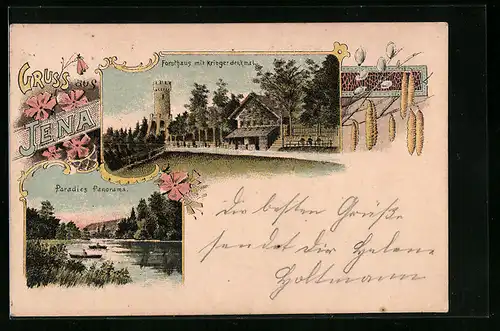 GRUSS AUS
JENA
Forsthaus mit Kriegerdenkmal.
Paradies Panorama.
Die besten Grüße
sendet dir Helene
Holtmann